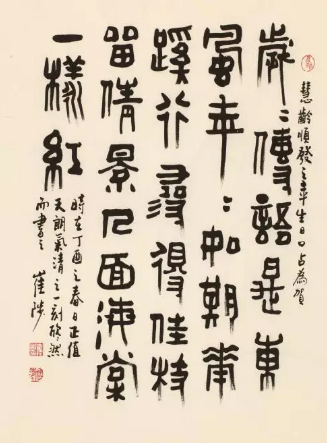 慧齡順發之生日口占為賀
歲〻傳語是東
風年〻如期華
蹊行尋得佳枝
留倩景人面海棠
一樣紅
時在丁酉之春日正值
天朗氣清之一刻欣然
而書之 崔陟